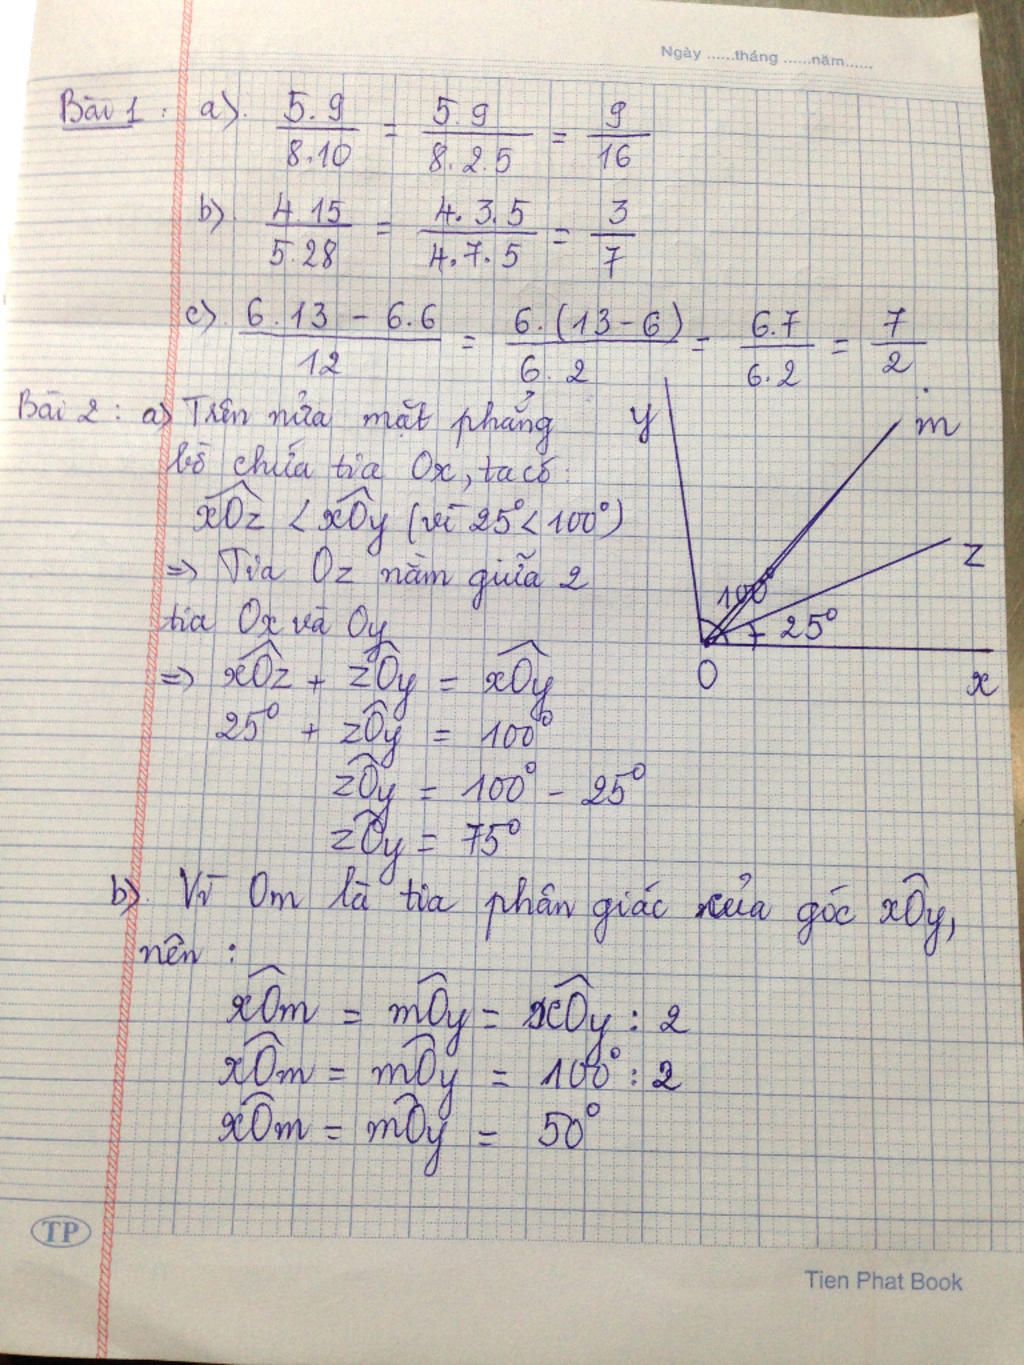 Ngày ......tháng ......năm......
Bài 1 : a). 5.9/8.10 = 5.9/8.2.5 = 9/16
b). 4.15/5.28 = 4.3.5/4.7.5 = 3/7
c). 6.13 - 6.6/12 = 6.(13-6)/6.2 = 6.7/6.2 = 7/2
Bài 2 : a) Trên nửa mặt phẳng
bờ chứa tia Ox, ta có:
xOz < xOy (vì 25° < 100°)
=> Tia Oz nằm giữa 2
tia Ox và Oy
=> xOz + zOy = xOy
25° + zOy = 100°
zOy = 100° - 25°
zOy = 75°
y
m
z
100°
25°
O
x
b). Vì Om là tia phân giác của góc xOy,
nên :
xOm = mOy = xOy : 2
xOm = mOy = 100° : 2
xOm = mOy = 50°
TP
Tien Phat Book